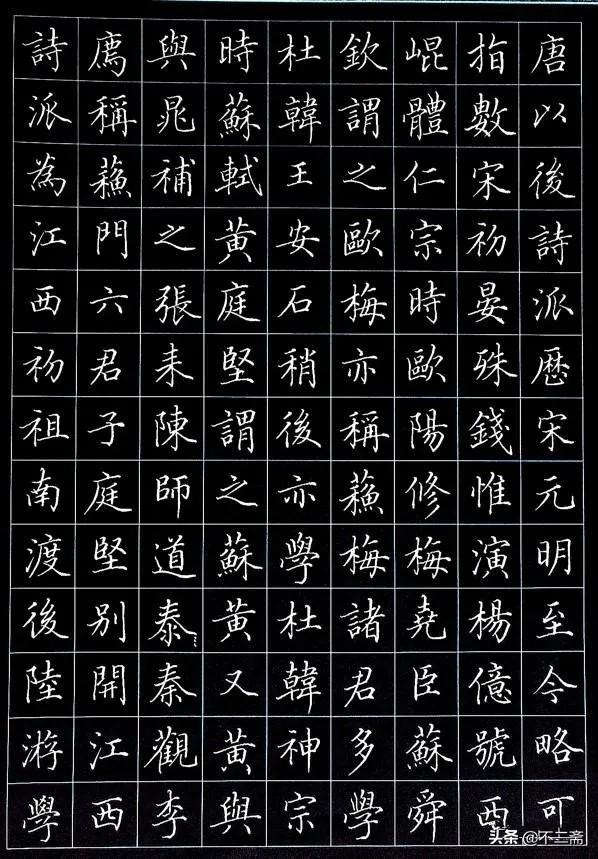 唐以後詩派歷宋元明至今略可
指數宋初晏殊錢惟演楊億號西
崐體仁宗時歐陽修梅堯臣蘇舜
欽謂之歐梅亦稱蘓梅諸君多學
杜韓王安石稍後亦學杜韓神宗
時蘇軾黃庭堅謂之蘇黃又黃與
與晁補之張耒陳師道泰秦觀李
廌稱蘓門六君子庭堅別開江西
詩派為江西初祖南渡後陸游學
头条@不二斋